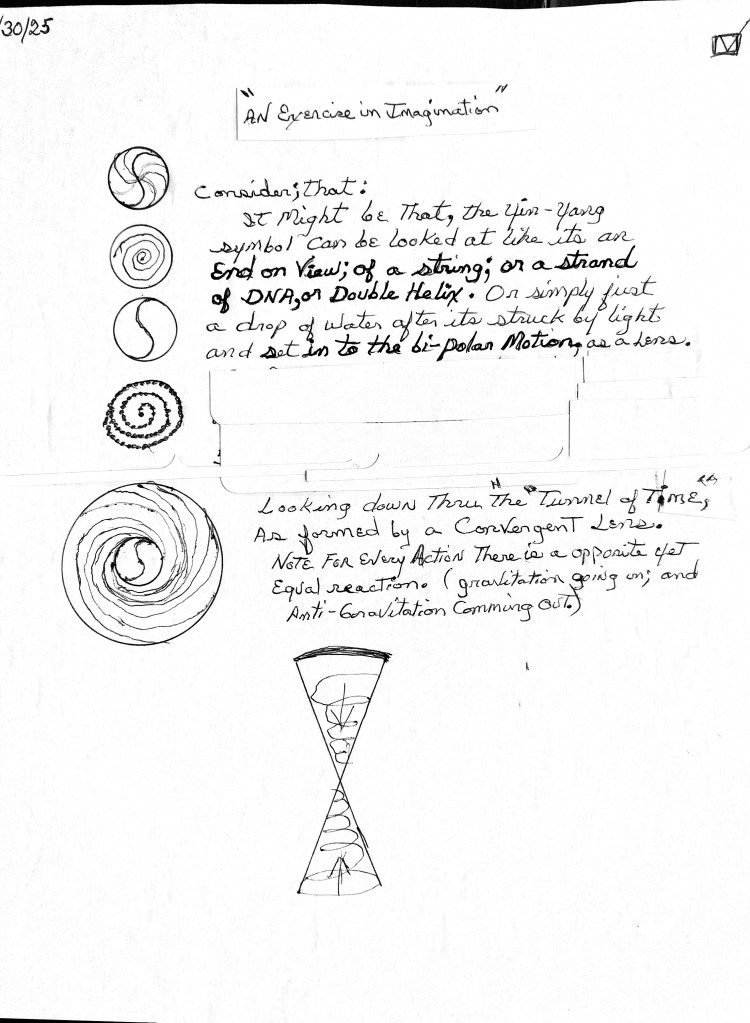 /30/25
"AN Exercise in Imagination"
Consider; that:
It Might be That, the Yin-Yang
symbol Can be Looked at like its an
End on View; of a string; or a strand
of DNA, or Double Helix. Or simply just
a drop of water after its struck by light
and set in to the bi-polar Motion, as a Lens.
Looking down Thru "The "Tunnel of Time",
As formed by a Convergent Lens.
Note For Every Action There is a opposite yet
Equal reaction. (gravitation going in; and
Anti-Gravitation Comming Out.)